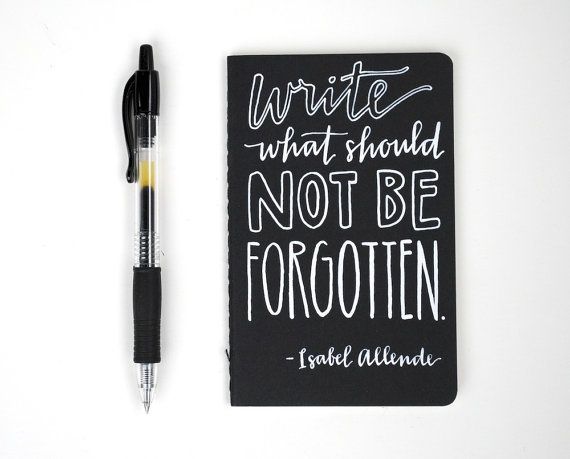 Write
what should
NOT BE
FORGOTTEN.
-Isabel Allende